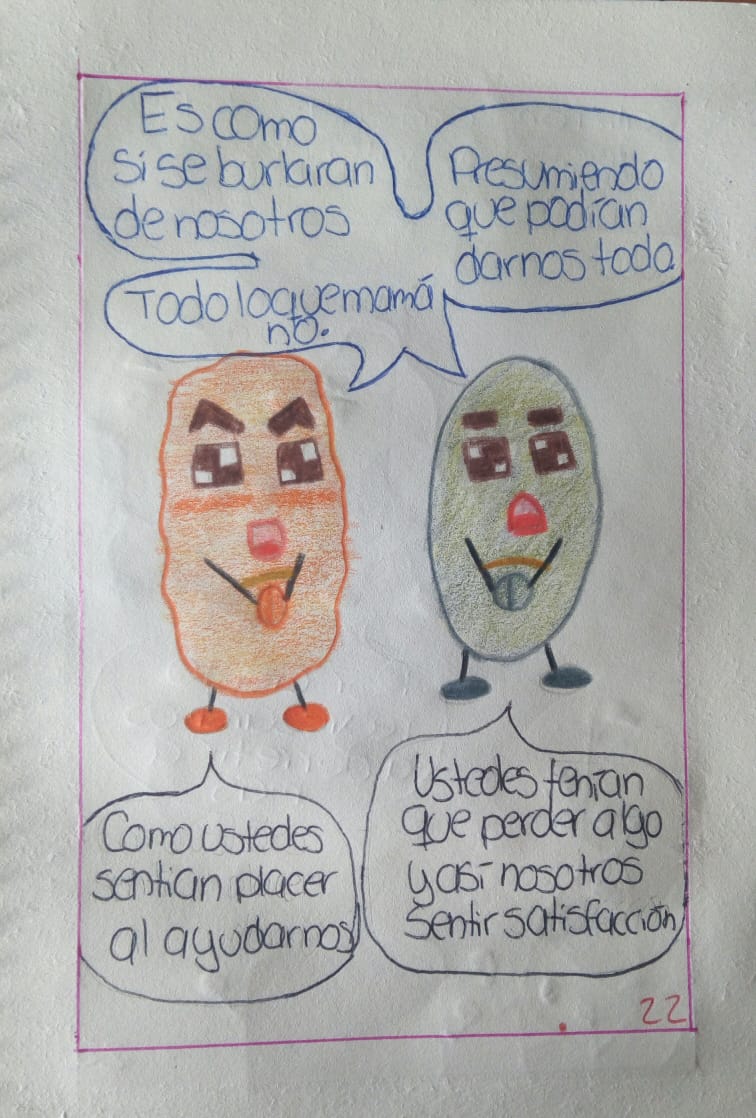 Es como
si se burlaran
de nosotros
Presumiendo
que podían
darnos todo
Todo lo que mamá
no.
Como ustedes
sentian placer
al ayudarnos
Ustedes tenían
que perder algo
y así nosotros
sentir satisfacción
22